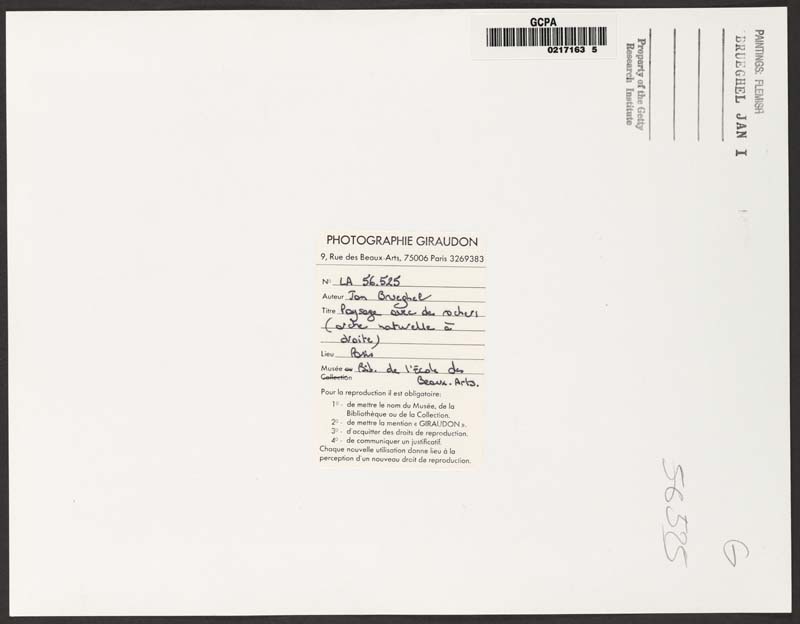 GCPA
0217163 5
Property of the Getty
Research Institute
PAINTINGS: FLEMISH
BRUEGHEL JAN I
PHOTOGRAPHIE GIRAUDON
9, Rue des Beaux-Arts, 75006 Paris 3269383
N° LA 56.525
Auteur Jan Brueghel
Titre Paysage avec des rochers
(arche naturelle à
droite)
Lieu Paris
Musée ou Bib. de l'Ecole des
Collection Beaux-Arts.
Pour la reproduction il est obligatoire:
1° - de mettre le nom du Musée, de la
Bibliothèque ou de la Collection.
2° - de mettre la mention « GIRAUDON ».
3° - d'acquitter des droits de reproduction.
4° - de communiquer un justificatif.
Chaque nouvelle utilisation donne lieu à la
perception d'un nouveau droit de reproduction.
56525
G